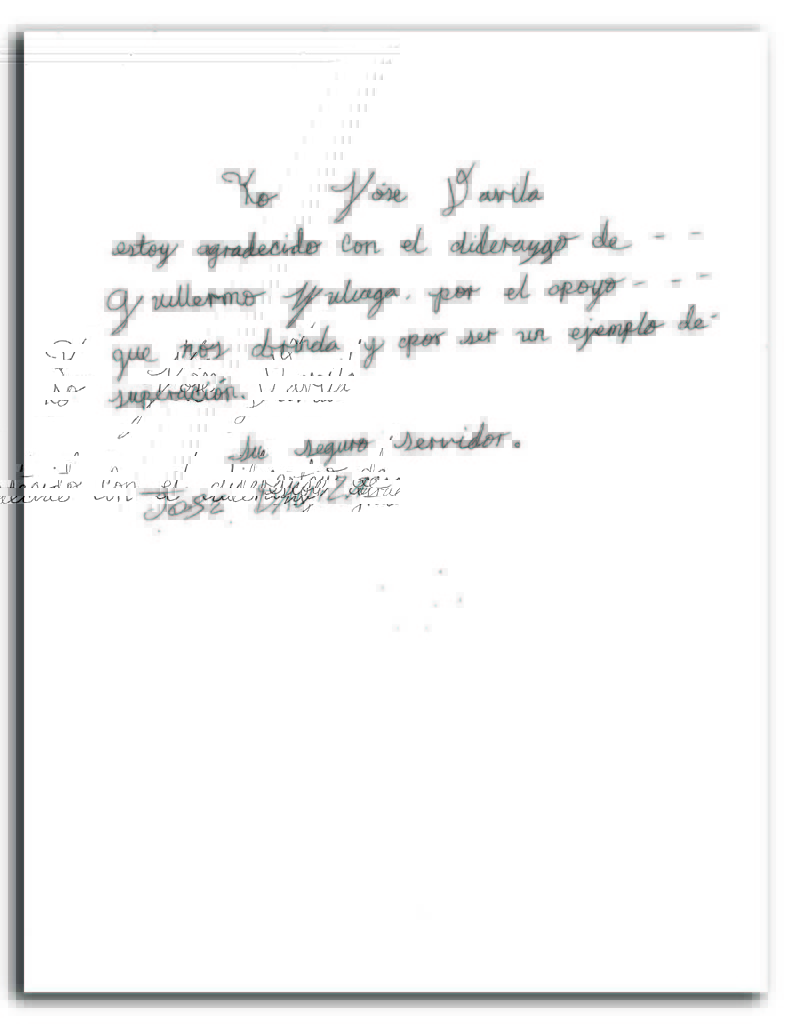 Yo José Davila
estoy agradecido con el lideraygo de - -
Guillermo Yuliaga. por el apoyo - - -
que nos brinda y por ser un ejemplo de-
superación.
su seguro servidor.
José